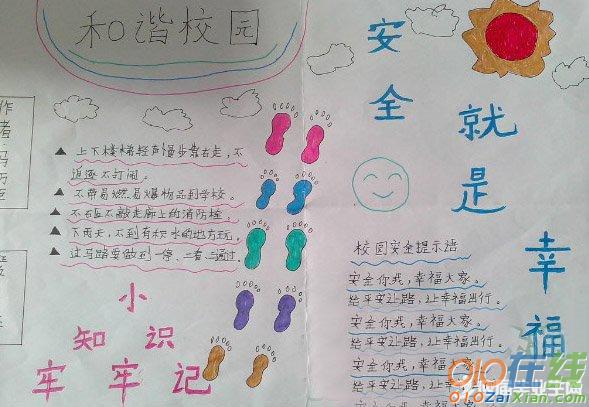 和谐校园
作
者
上下楼梯轻声慢步靠右走，不
追逐不打闹。
不带易燃易爆物品到学校。
不砸不敲走廊上的消防栓。
下雨天，不到有积水的地方玩。
过马路要做到一停、二看、三通过。
小
知识
牢牢记
安全
就是
幸福
校园安全提示语
安全你我，幸福大家。
给平安让路，让幸福出行。
安全你我，幸福大家。
给平安让路，让幸福出行。
安全你我，幸福大家。
给平安让路，让幸福出行。
010在线
010ZaiXian.com